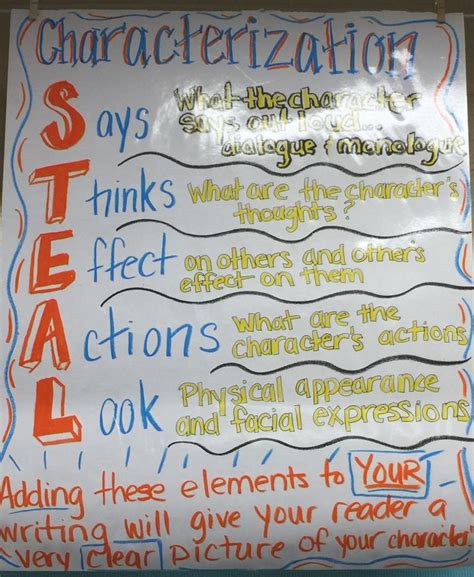 Characterization
Says What the character
says out loud...
dialogue + monologue
Thinks What are the character's
thoughts?
Effect on others and other's
effect on them
Actions What are the
character's actions
Look Physical appearance
and facial expressions
Adding these elements to YOUR
writing will give your reader a
very clear picture of your character